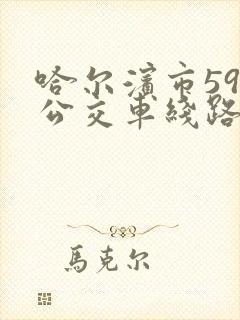 哈尔滨市59
公交车线路
馬克尔